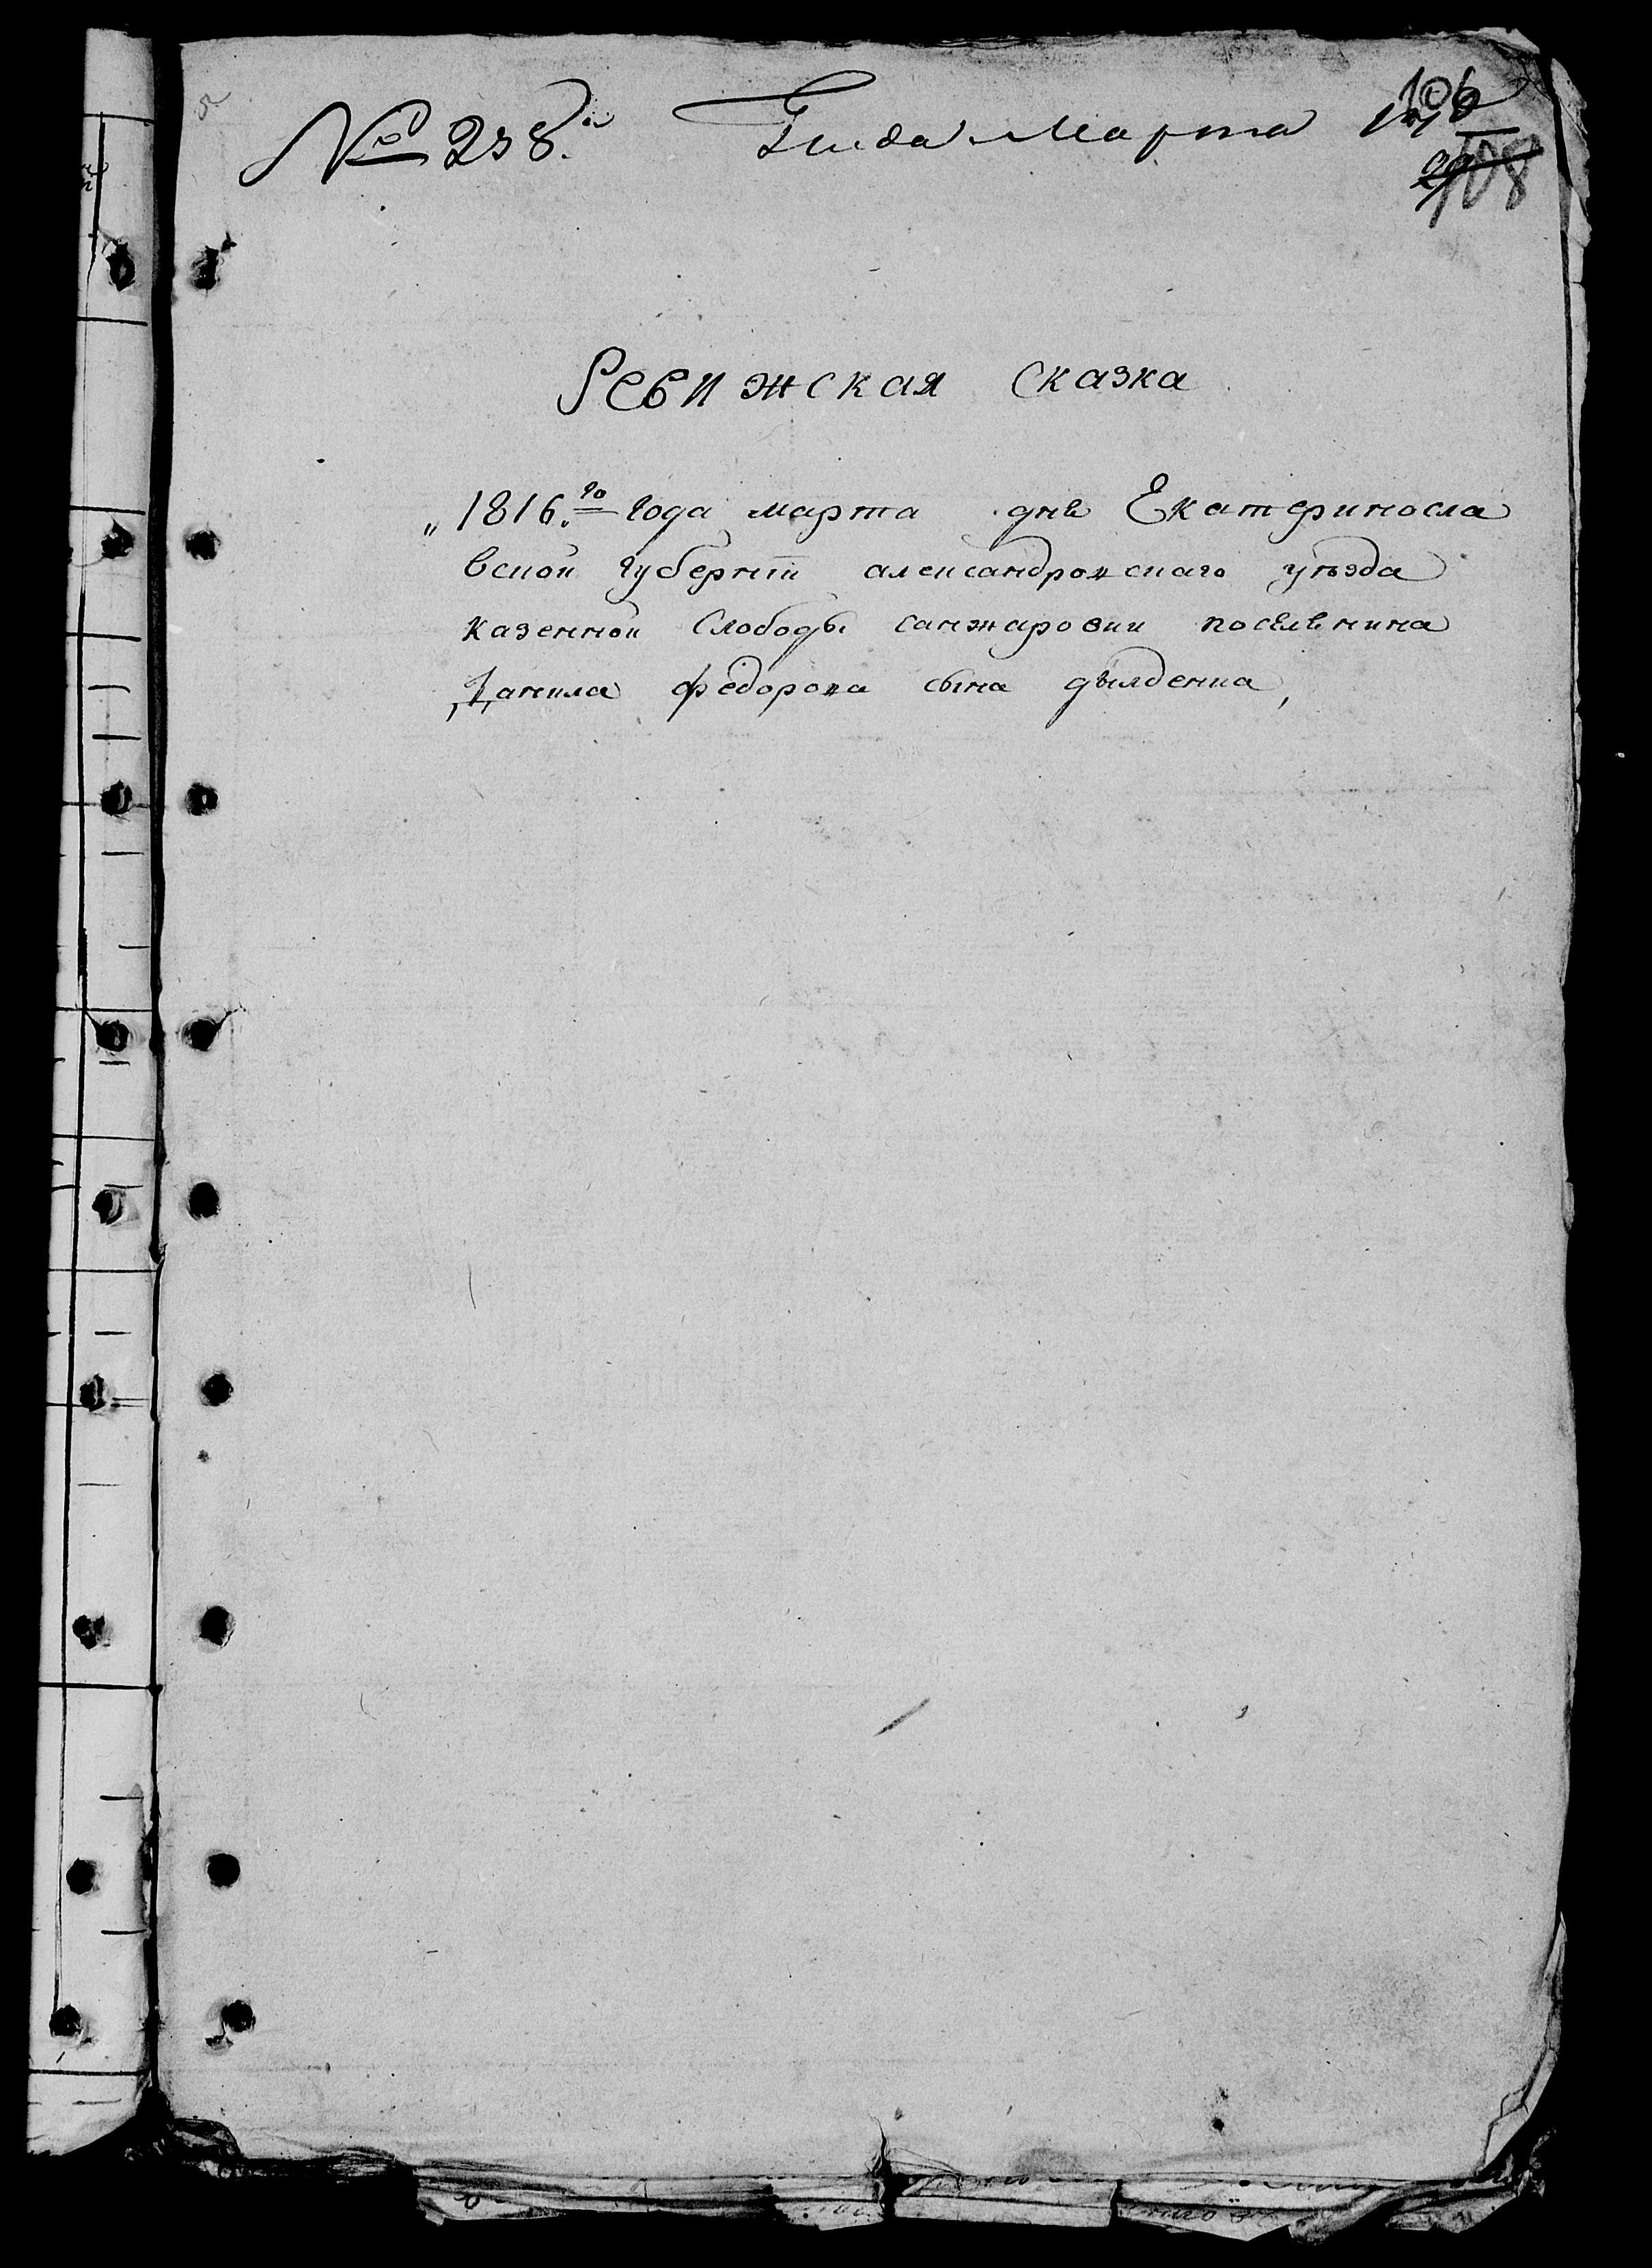 № 258. Марта 106
108
Ревижская Сказка
„1816.го года марта дня Екатериносла
вской губернiи александровскаго уѣзда
казенной Слободы санжаровки поселенина
Данила федорова сына дылденка,